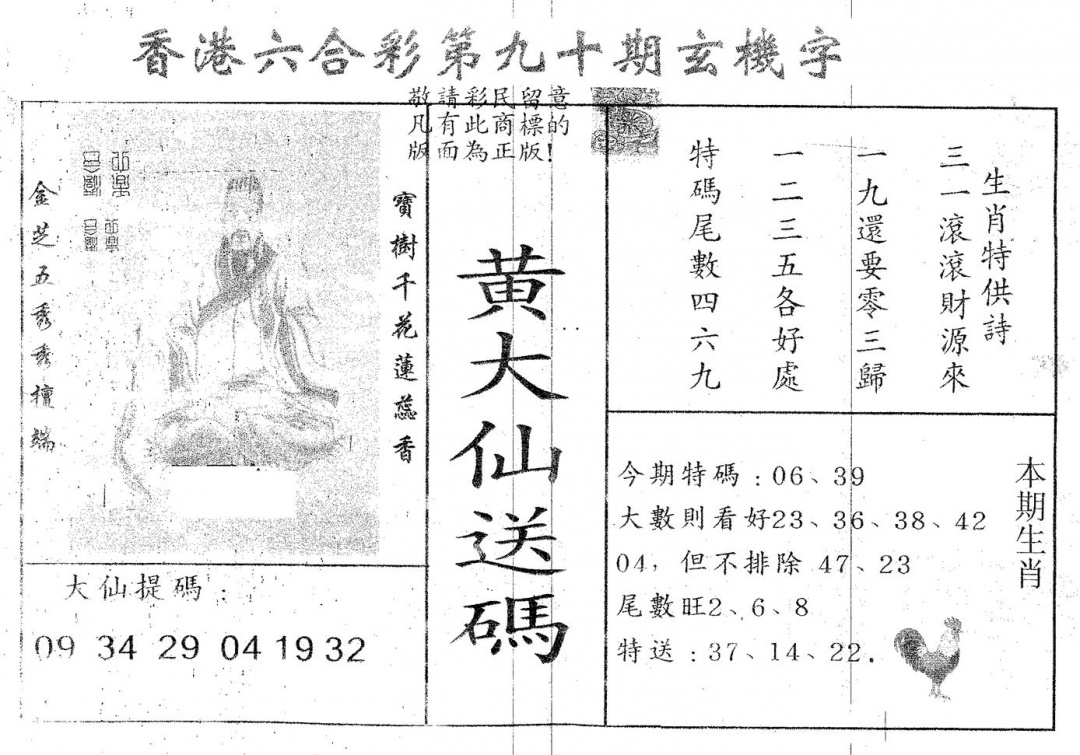 香港六合彩第九十期玄機字
敬請彩民留意
凡有此商標的
版面為正版!
生肖特供詩
三一滾滾財源來
一九還要零三歸
一二三五各好處
特碼尾數四六九
黃大仙送碼
寶樹千花蓮蕊香
金芝五秀秀檀端
大仙提碼：
09 34 29 04 19 32
本期生肖
今期特碼：06、39
大數則看好23、36、38、42
04，但不排除 47、23
尾數旺2、6、8
特送：37、14、22.